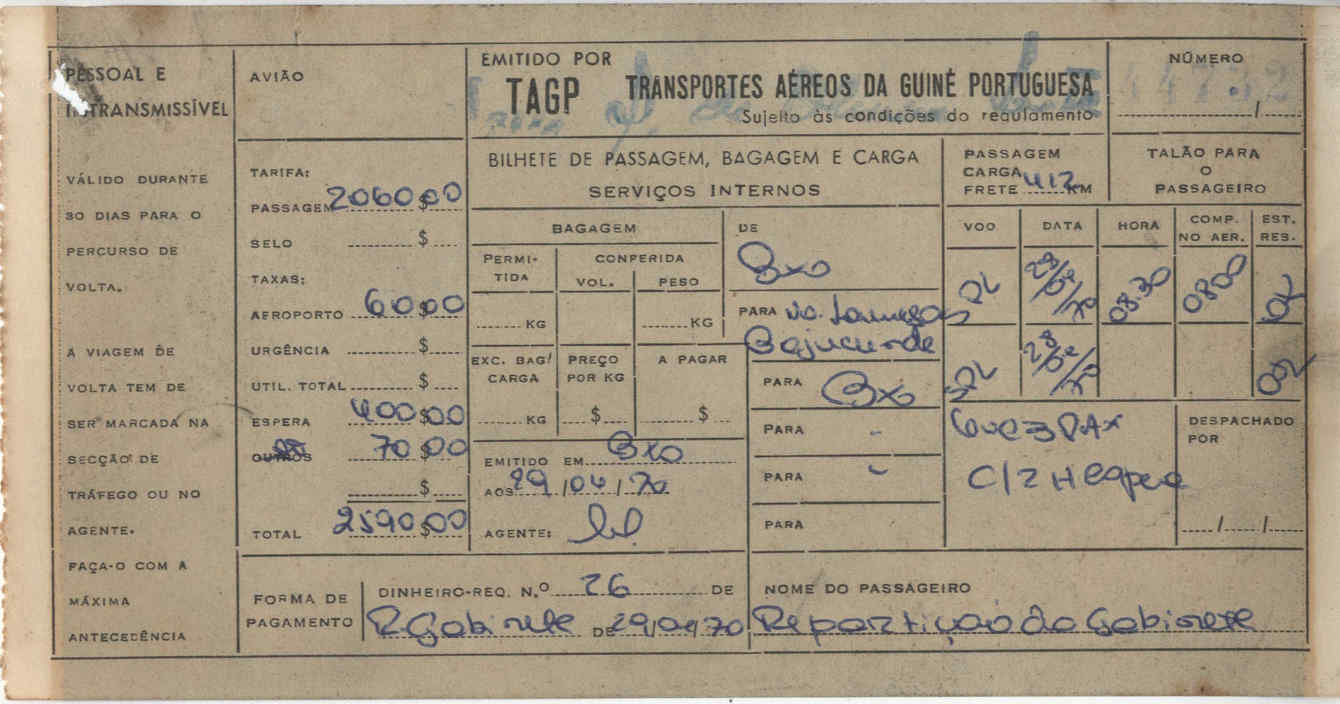 PESSOAL E
INTRANSMISSÍVEL
VÁLIDO DURANTE
30 DIAS PARA O
PERCURSO DE
VOLTA.
A VIAGEM DE
VOLTA TEM DE
SER MARCADA NA
SECÇÃO DE
TRÁFEGO OU NO
AGENTE.
FAÇA-O COM A
MÁXIMA
ANTECEDÊNCIA
AVIÃO
TARIFA:
PASSAGEM 2060$00
SELO $
TAXAS:
AEROPORTO 60$00
URGÊNCIA $
UTIL. TOTAL $
ESPERA 400$00
OUTROS 70$00
$
TOTAL 2590$00
EMITIDO POR
TAGP TRANSPORTES AÉREOS DA GUINÉ PORTUGUESA
Sujeito às condições do regulamento
NÚMERO
44732
/
BILHETE DE PASSAGEM, BAGAGEM E CARGA
SERVIÇOS INTERNOS
PASSAGEM
CARGA
FRETE 412 KM
TALÃO PARA
O
PASSAGEIRO
BAGAGEM
PERMI-
TIDA
CONFERIDA
VOL. PESO
KG KG
EXC. BAG/
CARGA
PREÇO
POR KG
A PAGAR
KG $ $
EMITIDO EM Bxo
AOS 29/04/70
AGENTE:
DE
Bxo
PARA
Bajucunda
PARA Bxo
PARA -
PARA -
PARA
VOO DATA HORA COMP.
NO AER. EST.
RES.
08.30 0800
C/2 H espera
DESPACHADO
POR
/ /
FORMA DE
PAGAMENTO
DINHEIRO-REQ. N.º 26 DE
R Gabinete DE 29/04/70
NOME DO PASSAGEIRO
Repartição do Gabinete